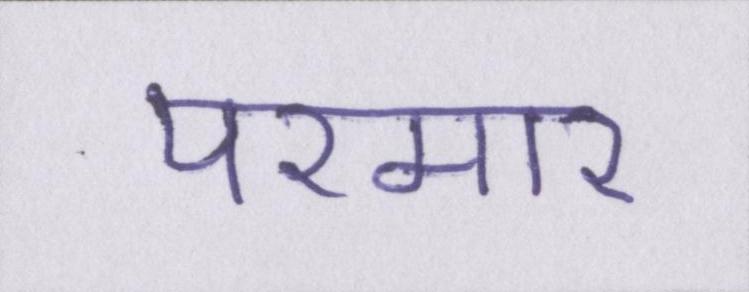 परमार